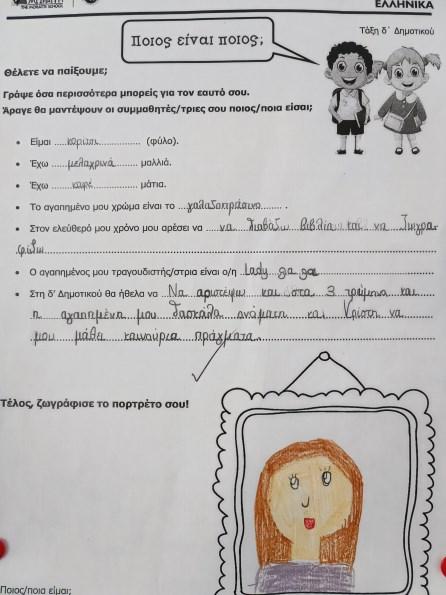 THE MORAITIS SCHOOL
ΕΛΛΗΝΙΚΑ
Ποιος είναι ποιος;
Τάξη δ΄ Δημοτικού
Θέλετε να παίξουμε;
Γράψε όσα περισσότερα μπορείς για τον εαυτό σου.
Άραγε θα μαντέψουν οι συμμαθητές/τριες σου ποιος/ποια είσαι;
• Είμαι κορίτσι (φύλο).
• Έχω μελαχρινά μαλλιά.
• Έχω καφέ μάτια.
• Το αγαπημένο μου χρώμα είναι το γαλαζοπράσινο.
• Στον ελεύθερό μου χρόνο μου αρέσει να να διαβάζω βιβλία και να ζωγρα-
φίζω
• Ο αγαπημένος μου τραγουδιστής/στρια είναι ο/η Lady ga ga
• Στη δ΄ Δημοτικού θα ήθελα να Να αριστέψω και στα 3 τρίμηνα και
η αγαπημένη μου δασκάλα ονόματι κυ Χρύση να
μου μάθει καινούρια πράγματα.
Τέλος, ζωγράφισε το πορτρέτο σου!
Ποιος/ποια είμαι;